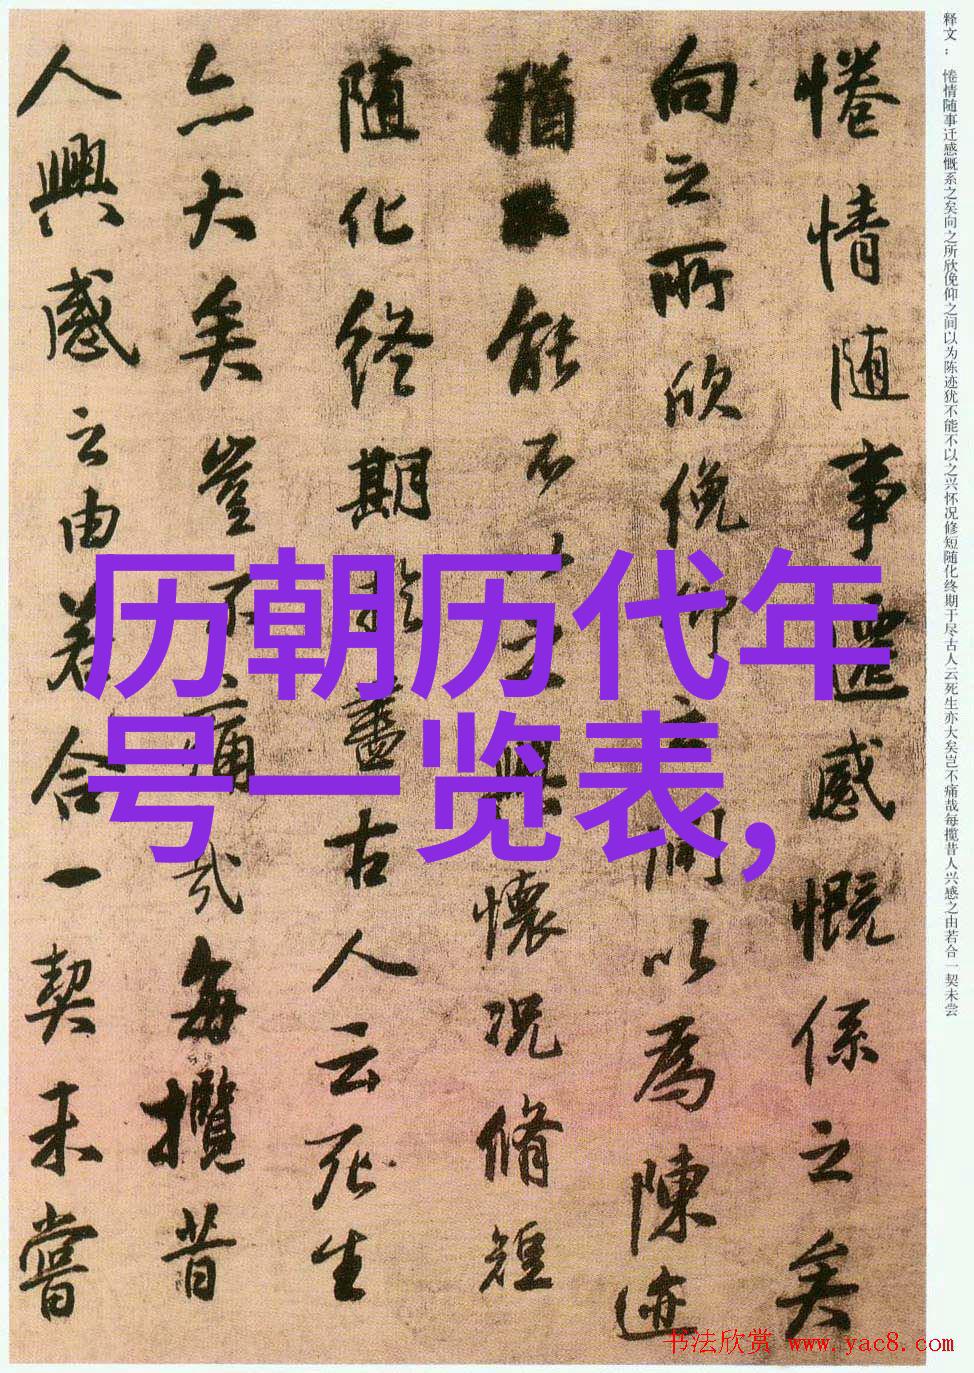 惓情隨事遷感慨係之矣
向之所欣俛仰之間以爲陳迹
猶不能不以之興懷况脩短
隨化終期於盡古人云死生
亦大矣豈不痛哉每攬昔
人興感之由若合一契未嘗
释文：惓情随事迁感慨系之矣向之所欣俛仰之间以为陈迹犹不能不以之兴怀况修短随化终期于尽古人云死生亦大矣岂不痛哉每揽昔人兴感之由若合一契未尝
历朝历代年
号一览表,
书法欣赏 www.yac8.com